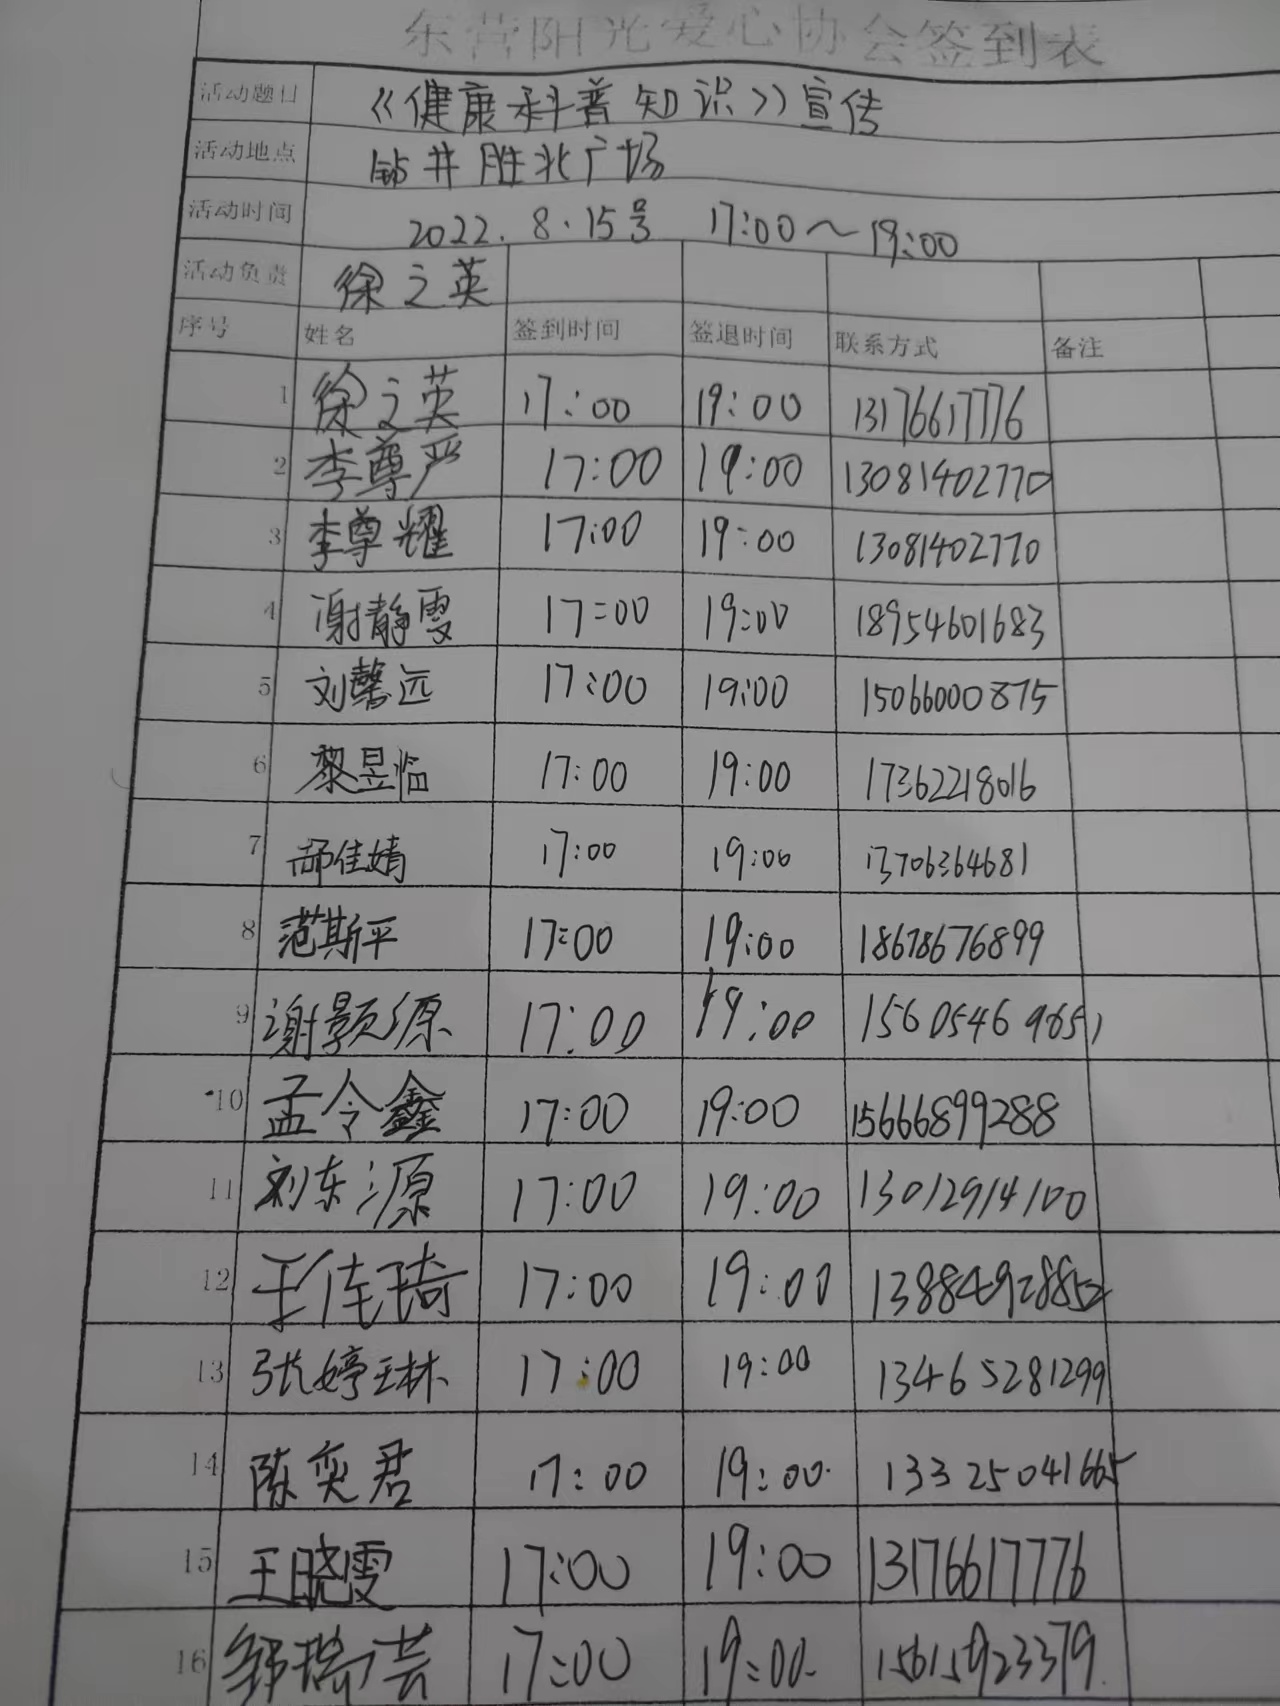 东营阳光爱心协会签到表
活动题目 《健康科普知识》宣传
活动地点 钻井胜北广场
活动时间 2022.8.15号 17:00～19:00
活动负责 徐之英
序号 姓名 签到时间 签退时间 联系方式 备注
1 徐之英 17:00 19:00 13176617776
2 李尊严 17:00 19:00 13081402770
3 李尊耀 17:00 19:00 13081402770
4 谢静雯 17:00 19:00 18954601683
5 刘馨远 17:00 19:00 15066000875
6 黎昱临 17:00 19:00 17362218016
7 邵佳婧 17:00 19:00 13706364681
8 范斯平 17:00 19:00 18678676899
9 谢颢源 17:00 19:00
10 孟令鑫 17:00 19:00 15666899288
11 刘东源 17:00 19:00 13012914100
12 17:00 19:00
13 张婷琳 17:00 19:00 13465281299
14 陈奕君 17:00 19:00 13325041665
15 王晓雯 17:00 19:00 13176617776
16 邹瑞芸 17:00 19:00 15615923379